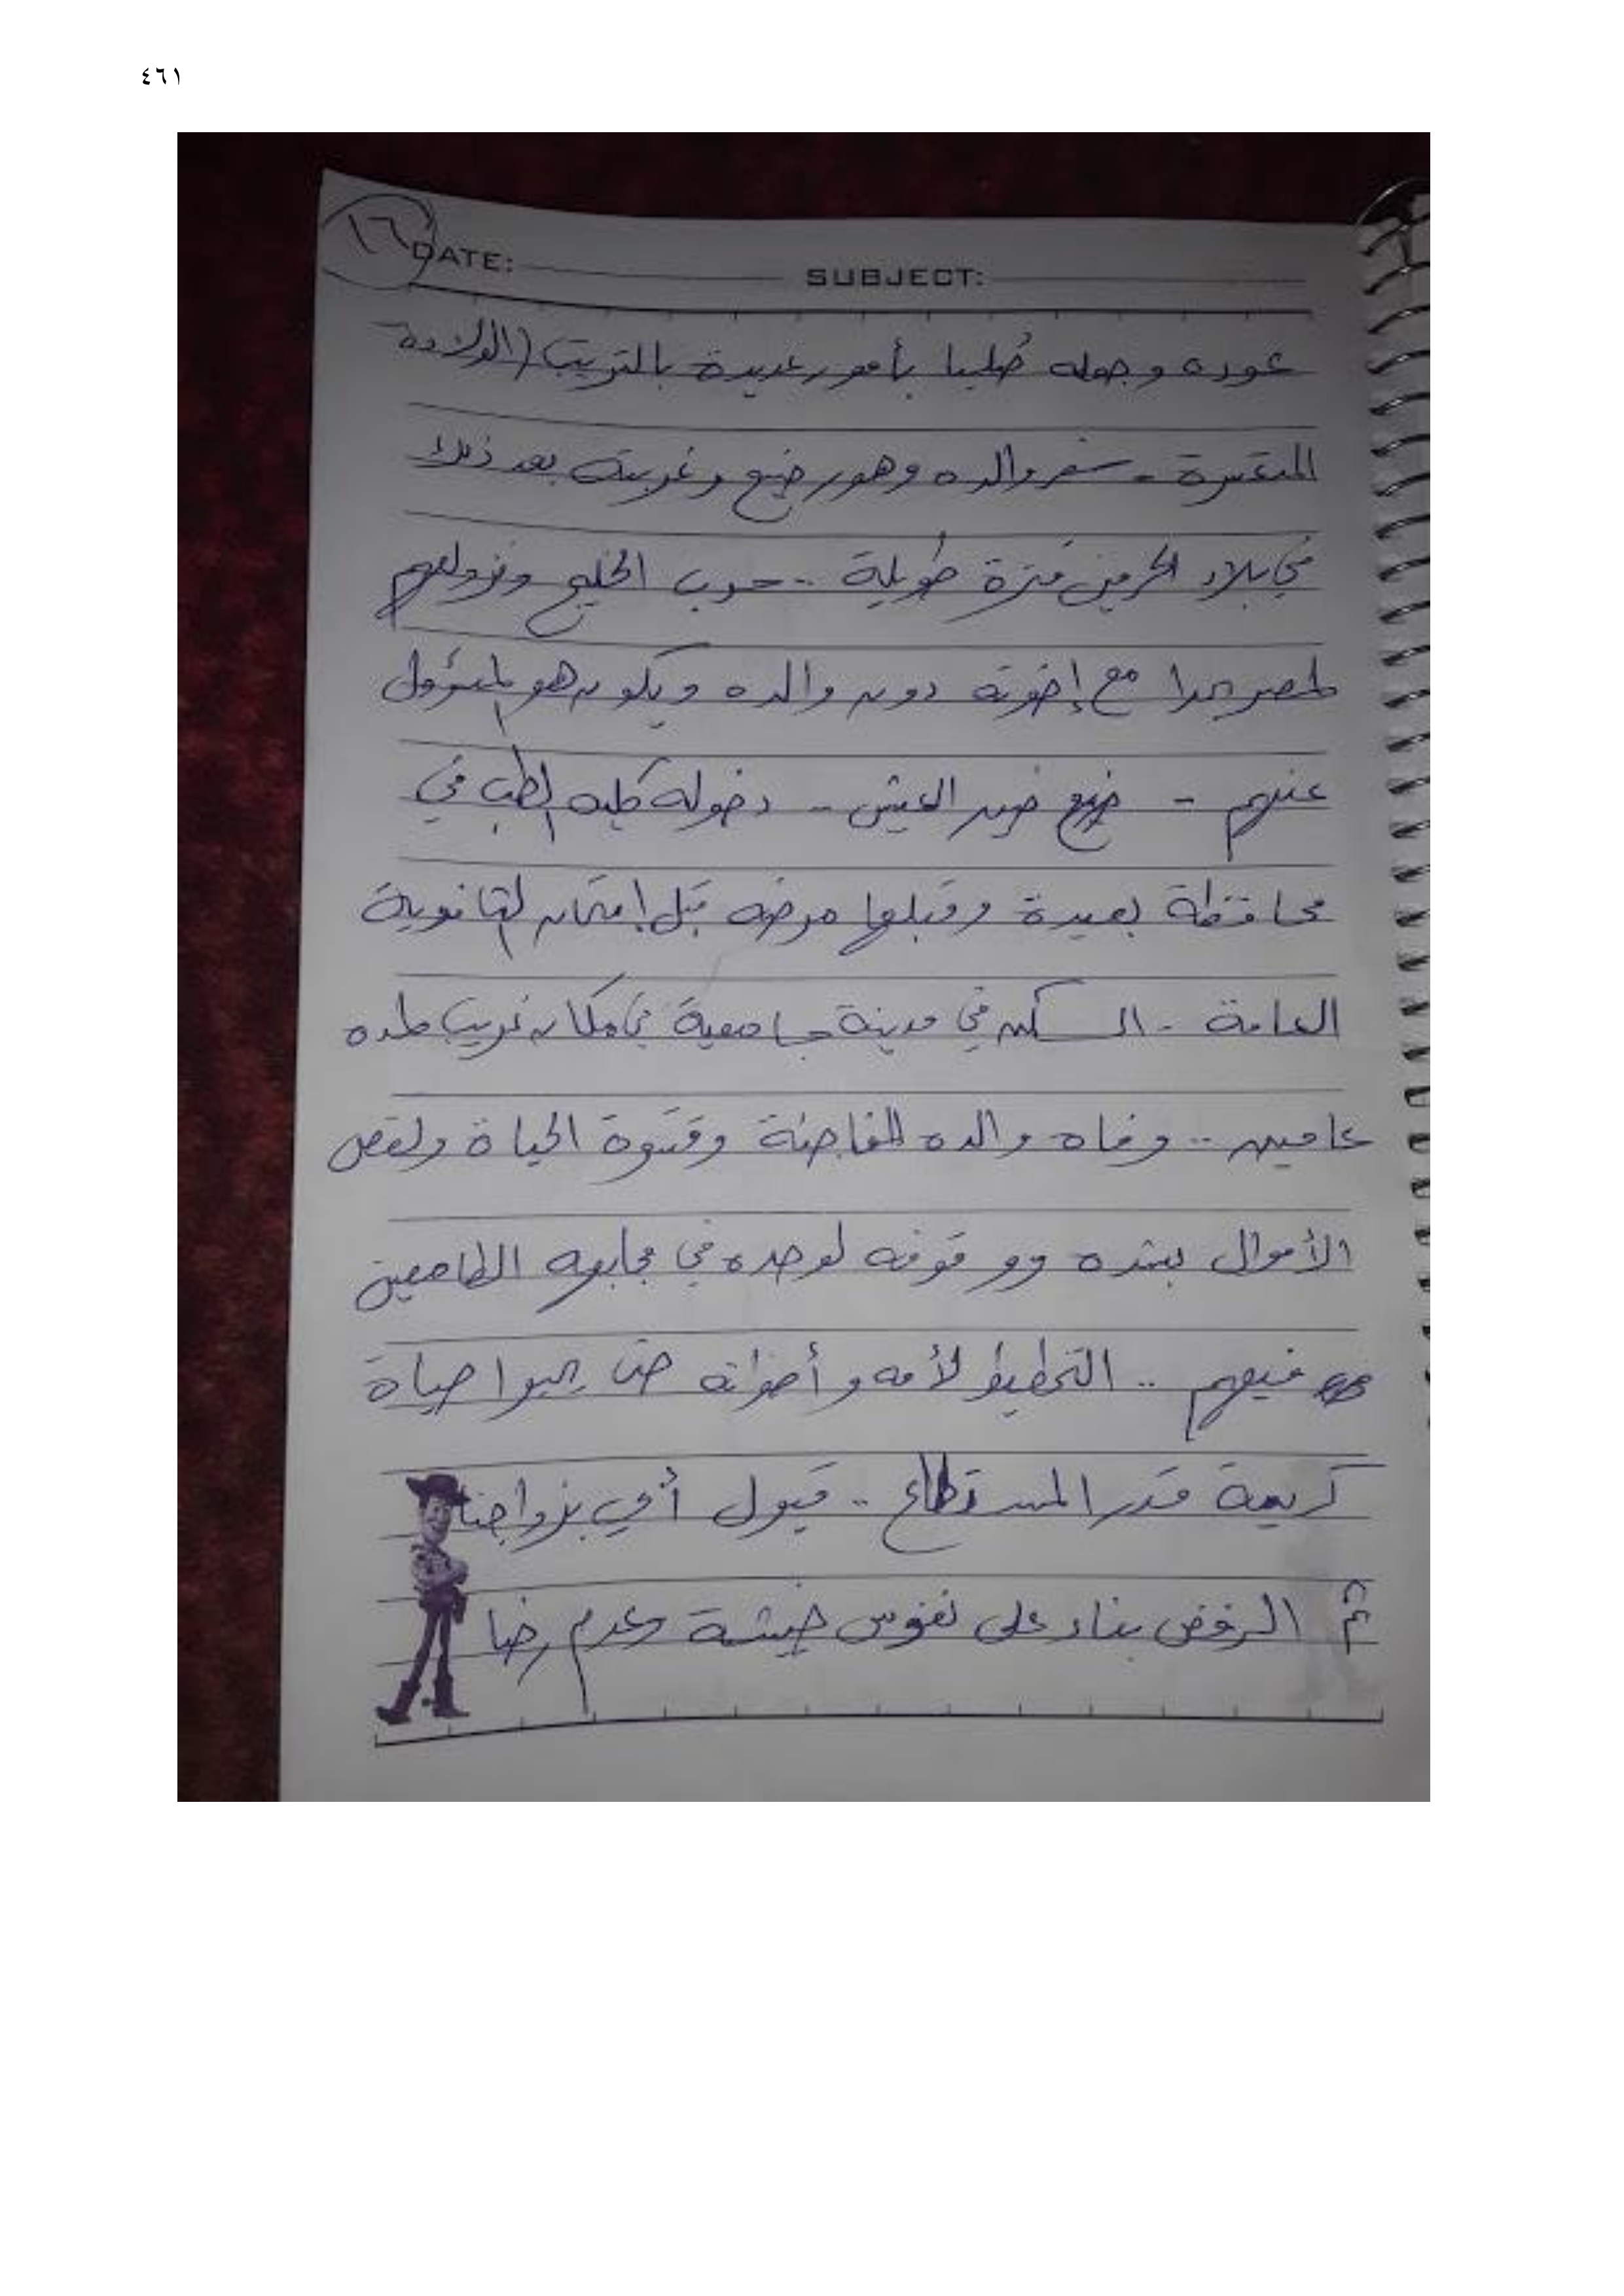 ٤٦١
١٦
DATE: SUBJECT:
عوده وجعله صُلبا بأمور عديدة بالترتيب (الولادة
المتعسرة - سفر والده وهو رضيع وغربته بعد ذلك
في بلاد الحرمين فترة طويلة .. حرب الخليج ونزولهم
لمصر مع إخوته دون والده ويكون هو المسؤول
عنهم - العيش .. دخوله كليه الطب في
محافظة بعيدة وقبلها مرضه قبل إمتحان الثانوية
العامة .. السكن في مدينة جامعية في مكان غريب لمده
عامين .. وفاه والده المفاجئة وقسوة الحياة ونقص
الأموال بشده ووقوفه لوحده في مجابهه الطامعين
فيهم .. التخطيط لأمه وأخواته حتى يحيوا حياة
كريمة قدر المستطاع .. قبول أبي بزواجنا
ثم الرفض بناء على نفوس خبيثة وعدم رضا